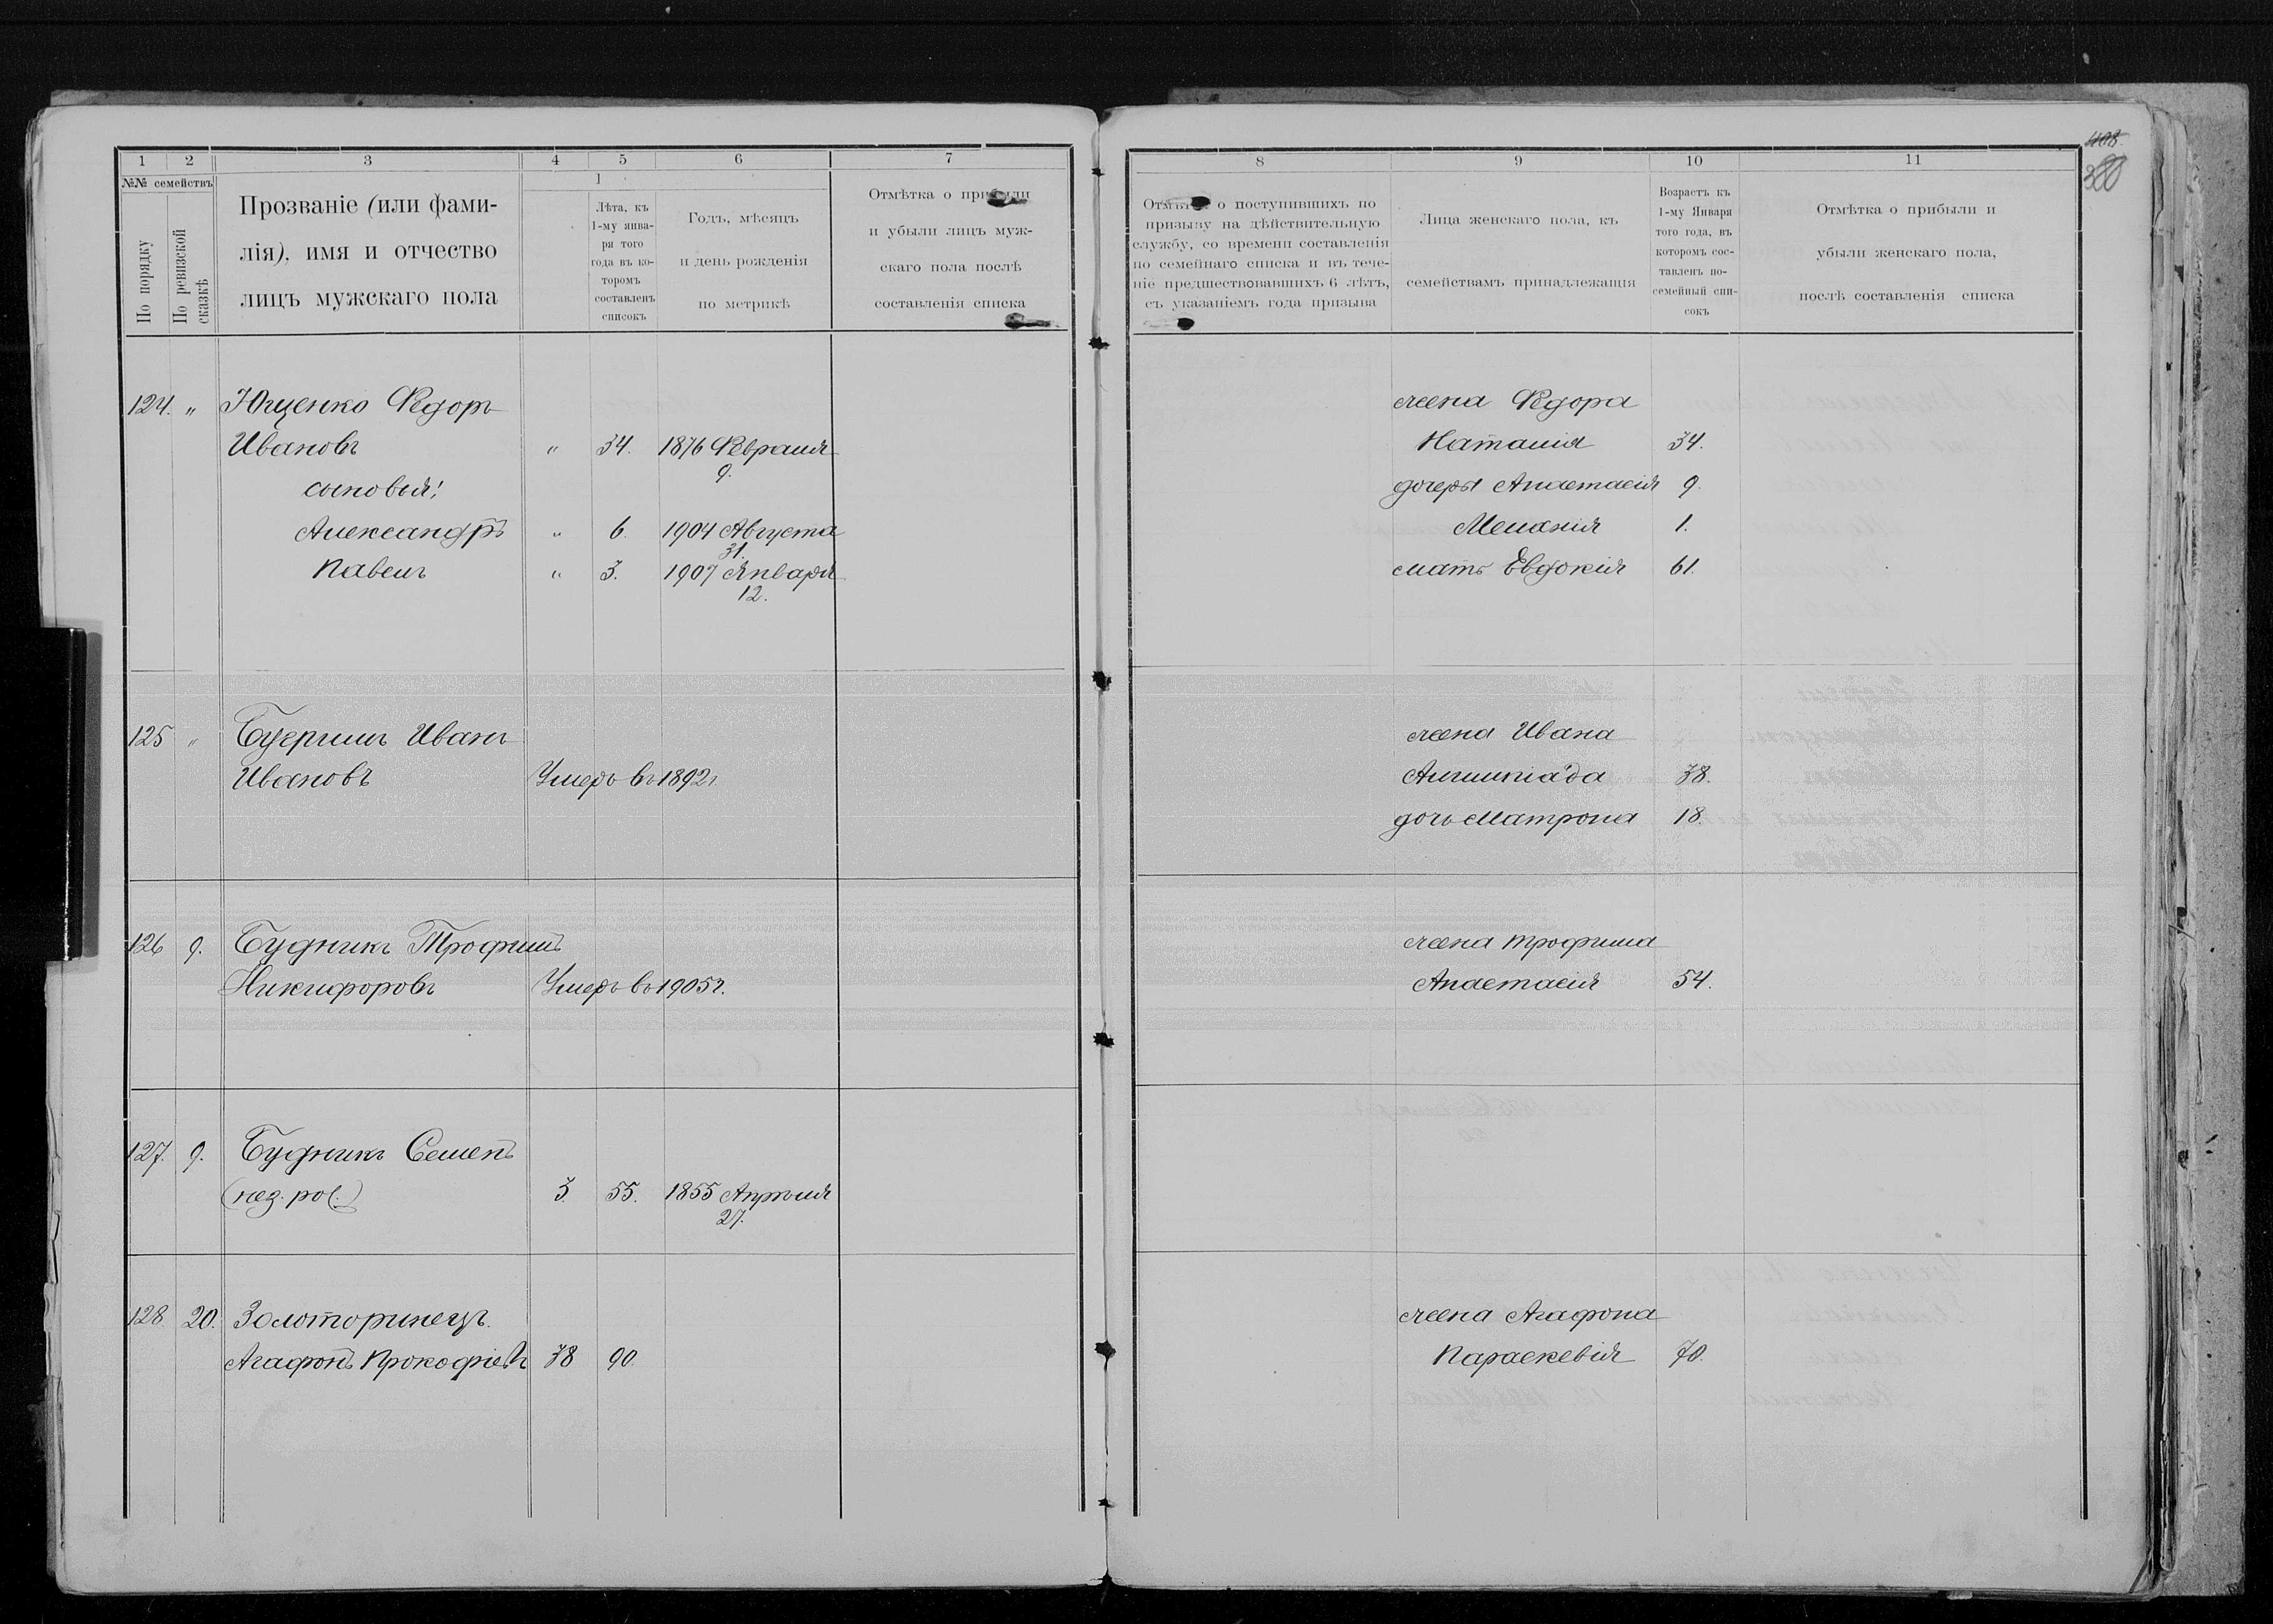 408.
380
1 2 3 4 5 6 7
№№ семействъ
По порядку
По ревизской сказкѣ
Прозваніе (или фами-
лія), имя и отчество
лицъ мужскаго пола
1
Лѣта, къ
1-му янва-
ря того
года въ ко-
торомъ
составленъ
списокъ
Годъ, мѣсяцъ
и день рожденія
по метрикѣ
Отмѣтка о прибыли
и убыли лицъ муж-
скаго пола послѣ
составленія списка
124. „ Ющенко Федоръ
Ивановъ „ 34. 1876 Февраля
9.
сыновья:
Александръ „ 6. 1904 Августа
31.
Павелъ „ 3. 1907 Января
12.
125 „ Иванъ
Ивановъ Умеръ въ 1892г.
126 9. Будникъ Трофимъ
Никифоровъ Умеръ въ 1905г.
127. 9. Будникъ Семенъ
(нез. рож.) 3. 55. 1855 Апрѣля
27.
128 20. Золоторинецъ
Агафонъ Прокофіевъ 38 90.
8 9 10 11
Отмѣтка о поступившихъ по
призыву на дѣйствительную
службу, со времени составленія
по семейнаго списка и въ тече-
ніе предшествовавшихъ 6 лѣтъ,
съ указаніемъ года призыва
Лица женскаго пола, къ
семействамъ принадлежащія
Возрастъ къ
1-му Января
того года, въ
которомъ сос-
тавленъ по-
семейный спи-
сокъ
Отмѣтка о прибыли и
убыли женскаго пола,
послѣ составленія списка
жена Федора
Наталія 34.
дочеры Анастасія 9.
Меланія 1.
мать Евдокія 61.
жена Ивана
38.
дочь Матрона 18.
жена Трофима
Анастасія 54.
жена Агафона
Параскевія 70.